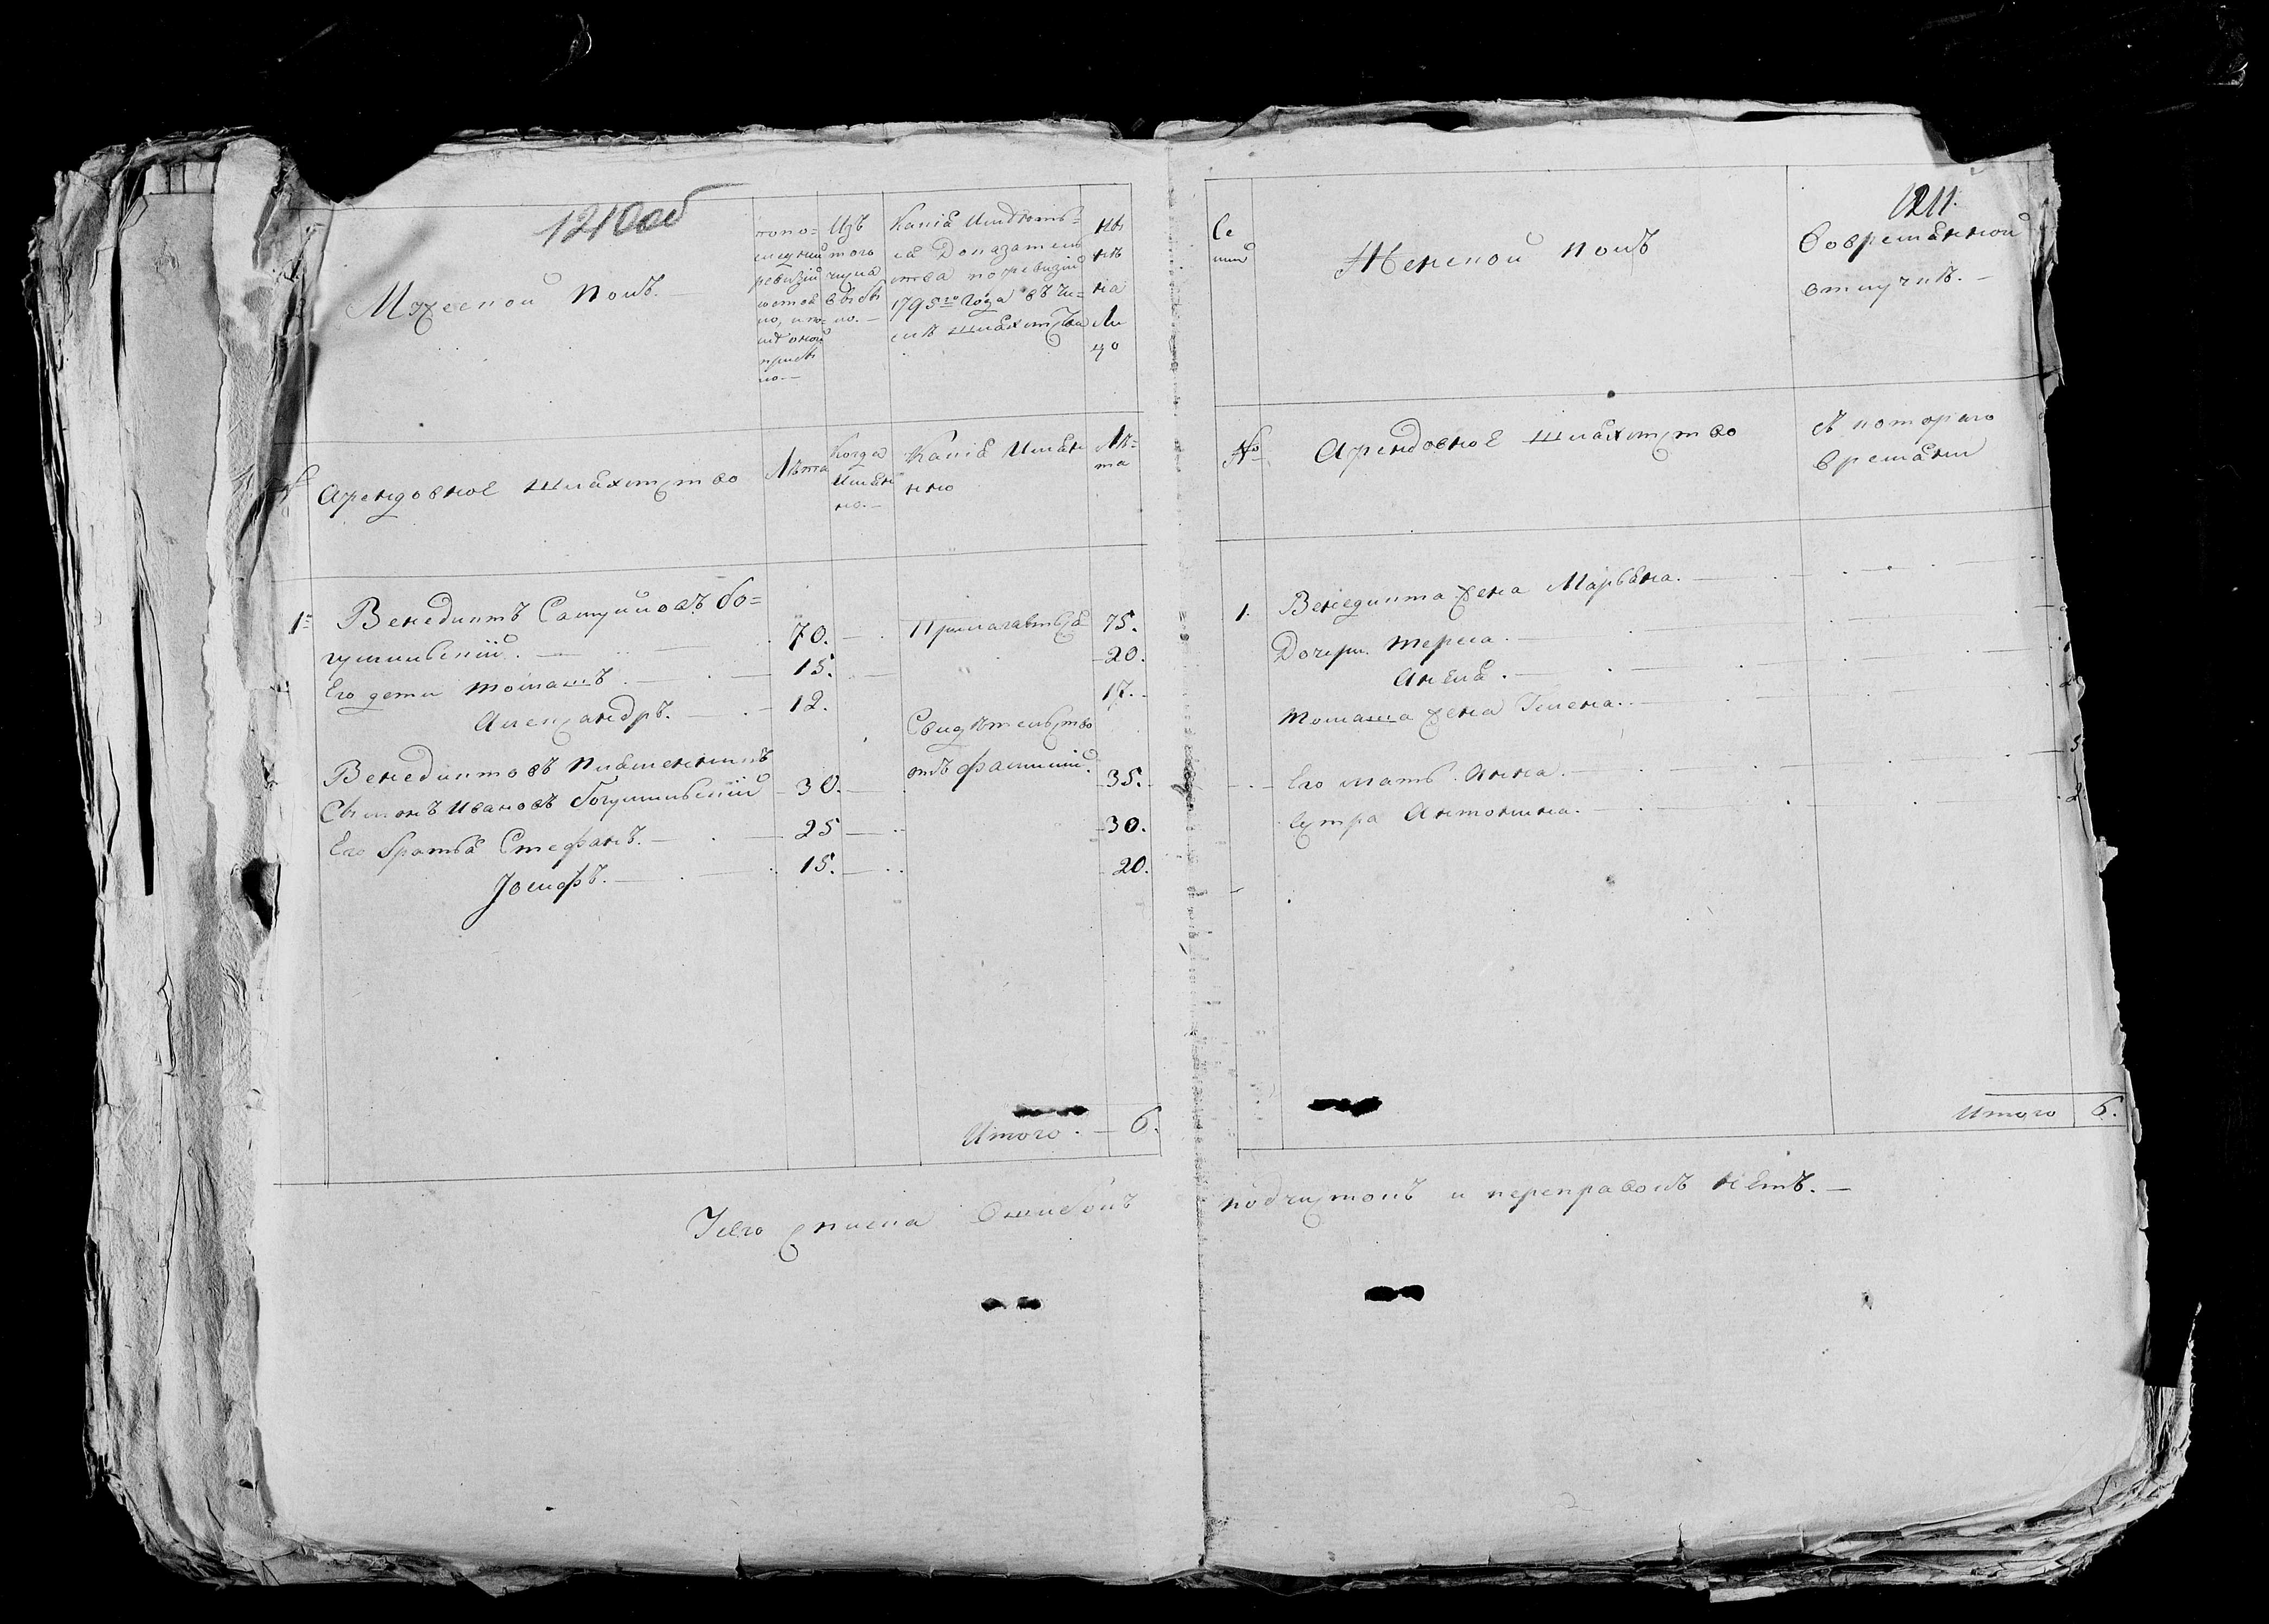 1210об
Мужеской полъ.
попо=
следней
ревизіи
состоя
ло, и по=
слѣ оной
прибы
ло.—
Изъ
того
числа
выбы
ло.—
Какія имѣютъ=
ся Доказатель
ства поревизіи
1795го Года въ чи=
слѣ шляхетства
Ны
нѣ
на
Ли
цо
Арендовное Шляхетство
Лѣта
Когда
Имян
но.—
Какія Имян
но
Лѣ=
та
1= Венедиктъ Самуйловъ бо=
гушевскій. — 70. — Прилагается 75.
Его дети Томашъ. — 15. — 20.
Александръ. — 12. 17.
Свидѣтельство
Венедиктовъ Племенникъ отъ фамилии.
Сымонъ Ивановъ Богушевскій — 30. — 35.
Его братья Стефанъ. — 25 — 30.
Іосифъ. — 15. — 20.
Итого. — 6.
Усего списка Ошибокъ
1211.
Се
мьи
Женской полъ
Вовременной
отлучкѣ.—
№
Арендовное Шляхетство
съ котораго
времяни
1. Венедикта жена Марьяна.
Дочери. Тереса.
Анеля.
Томаша жена Елена.
Его мать Анна. — 5
Сестра Антонина. — 2
Итого 6.
подчистокъ и переправокъ нетъ.—